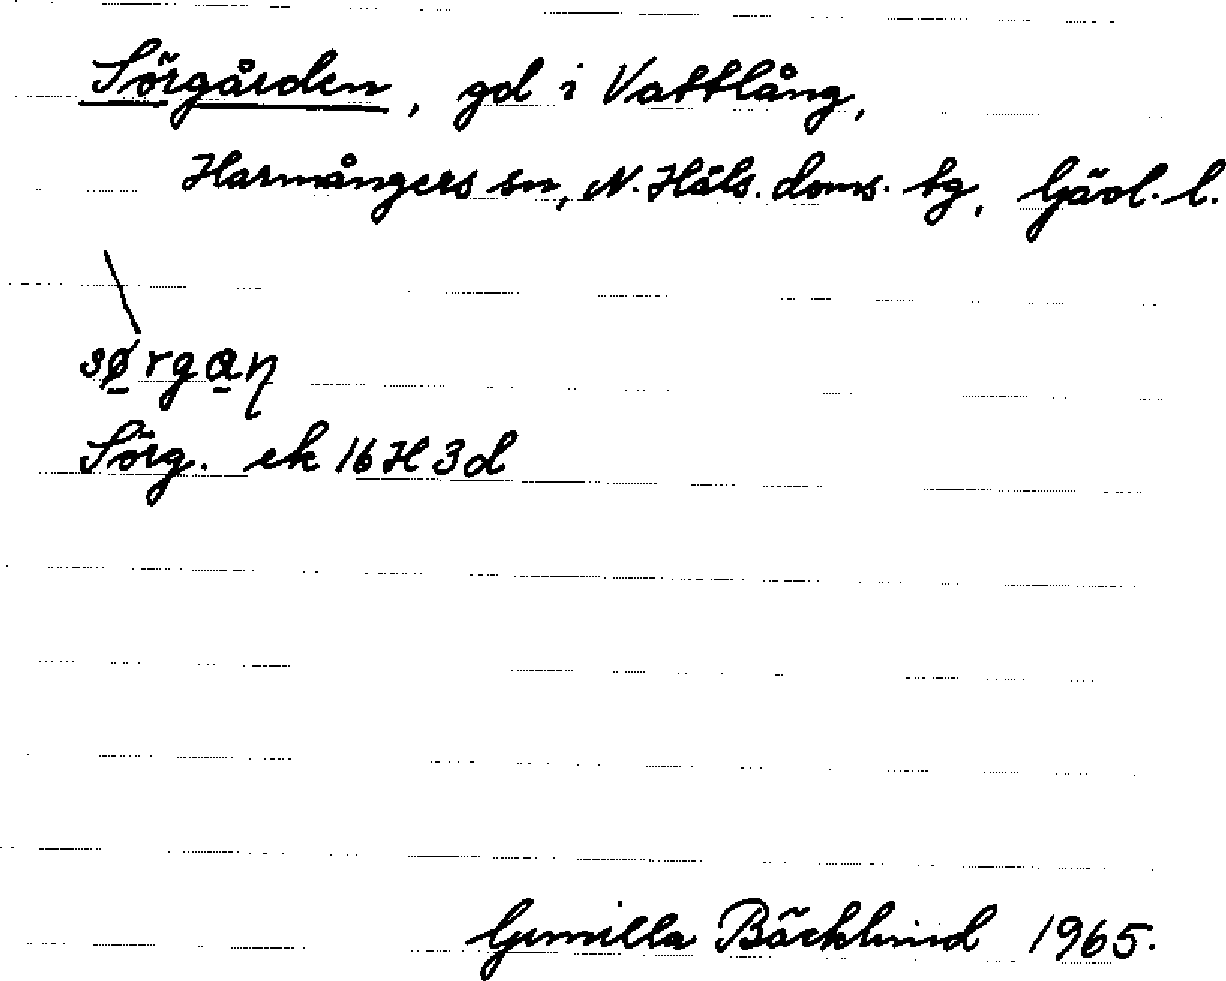 Sörgården, gd i Vattlång,
Harmångers sn, N. Häls. doms. tg, Gävl. l.
sø̱rga̱ɳ
Sörg. ek 16H3d
Gunilla Bäcklund 1965.